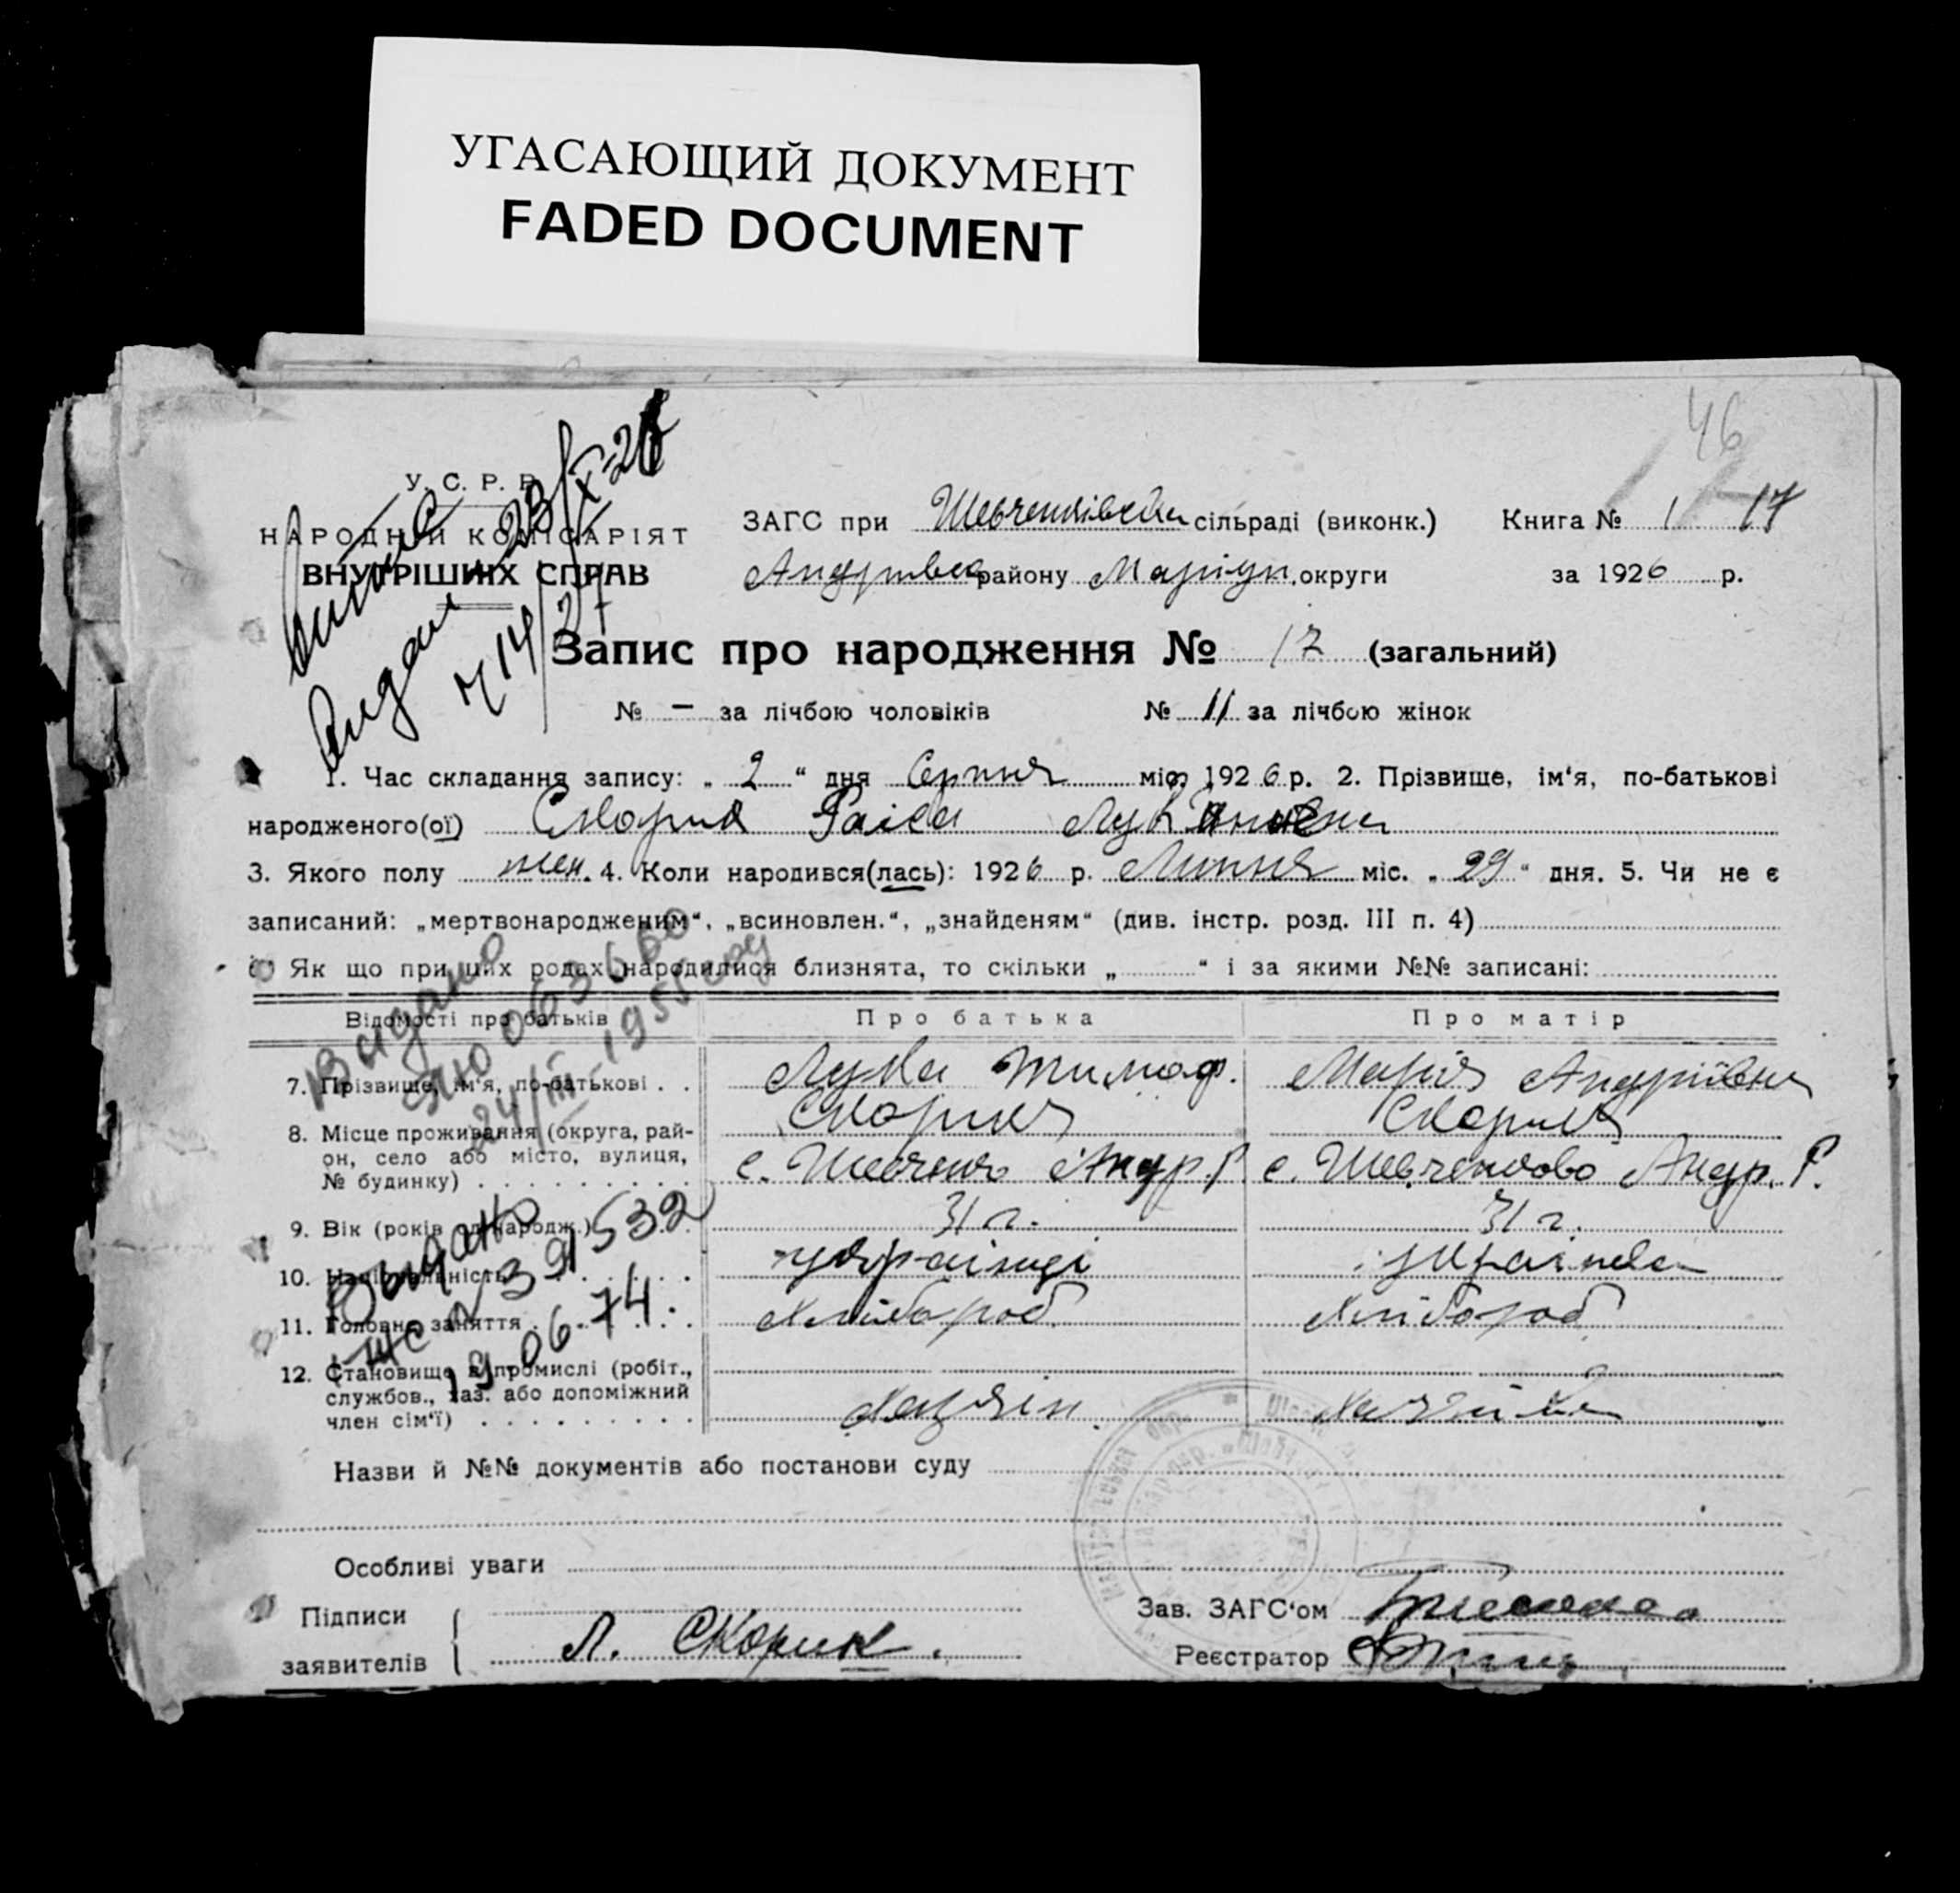 УГАСАЮЩИЙ ДОКУМЕНТ
FADED DOCUMENT
46
У. С. Р. Р.
НАРОДНІЙ КОМІСАРІЯТ
ВНУТРІШНІХ СПРАВ
23/IX-26
Видана
ЗАГС при Шевченківскій сільраді (виконк.) Книга № 1 17
Андріївск району Маріуп. округи за 1926 р.
Запис про народження № 17 (загальний)
№ — за лічбою чоловіків № 11 за лічбою жінок
1. Час складання запису: „ 2 “ дня Серпня міс. 1926 р. 2. Прізвище, ім‘я, по-батькові
народженого(ої) Скорик Раіса Лук
3. Якого полу жен. 4. Коли народився(лась): 1926 р. Липня міс. „ 29 “ дня. 5. Чи не є
записаний: „мертвонародженим“, „всиновлен.“, „знайденям“ (див. інстр. розд. III п. 4)
6. Як що при цих родах народилися близнята, то скільки „ “ і за якими №№ записані:
Видано
ЯЮ 063660
24/III-1955 году
Відомості про батьків Про батька Про матір
7. Прізвище, ім‘я, по-батькові . . Лука Тимоф. Марія Андріївна
Скорик Скорик
8. Місце проживання (округа, рай-
он, село або місто, вулиця, с. Шевченко Андр. Р. с. Шевченково Андр. Р.
№ будинку)
9. Вік (років од народж.) 31 г. 31 г.
10. Національність украінці украінка
11. Головне заняття Хлібороб. Хлібороб
12. Становище в промислі (робіт.,
службов., хаз. або допоміжний Хазяін. Хазяйка
член сім‘ї)
Видано
391532
19-06-74
Назви й №№ документів або постанови суду
Особливі уваги
Підписи Зав. ЗАГС‘ом
заявителів Л. Скорик. Реєстратор